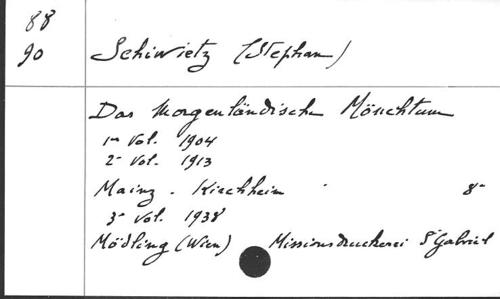 88
90
Schiwietz (Stephan)
Das Morgenländische Mönchtum
1r Vol. 1904
2r Vol. 1913
Mainz - Kirchheim 8°
3r Vol. 1938
Mödling (Wien) Missionsdruckerei St Gabriel